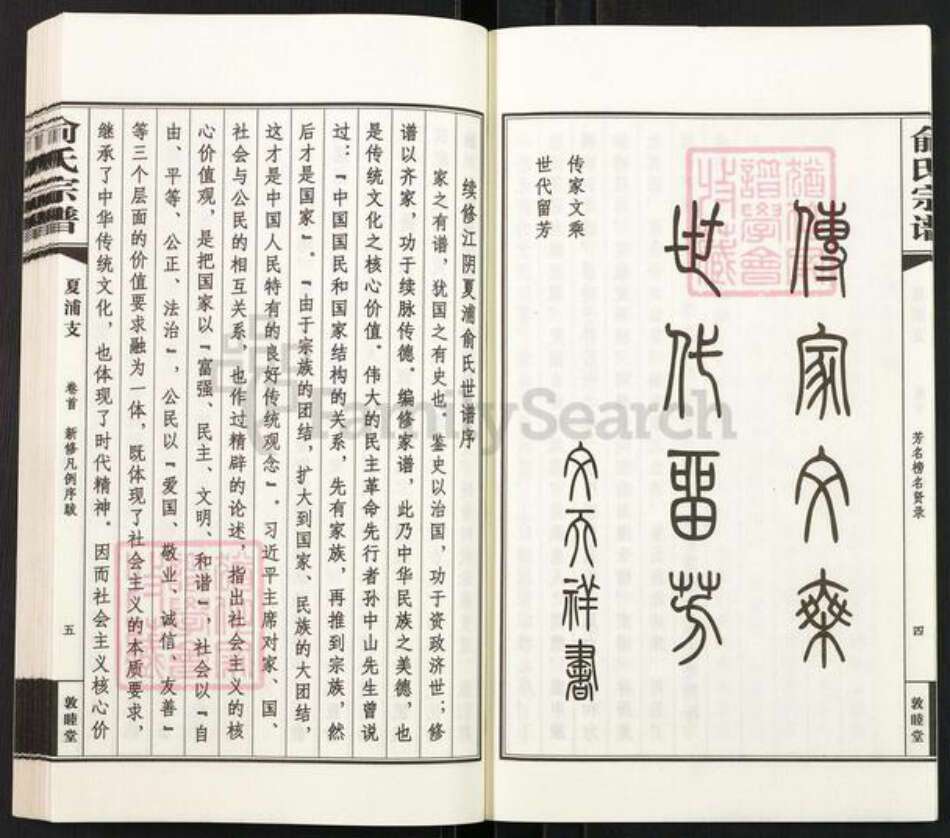 俞氏宗谱
芳名榜名贤录
四
敦睦堂
傳家文樂
世代畱芳
文天祥書
传家文乘
世代留芳
续修江阴夏浦俞氏世谱序
家之有谱，犹国之有史也。鉴史以治国，功于资政济世；修
谱以齐家，功于续脉传德。编修家谱，此乃中华民族之美德，也
是传统文化之核心价值。伟大的民主革命先行者孙中山先生曾说
过：『中国国民和国家结构的关系，先有家族，再推到宗族，然
后才是国家』。『由于宗族的团结，扩大到国家、民族的大团结，
这才是中国人民特有的良好传统观念』。习近平主席对家、国、
社会与公民的相互关系，也作过精辟的论述，指出社会主义的核
心价值观，是把国家以『富强、民主、文明、和谐』，社会以『自
由、平等、公正、法治』，公民以『爱国、敬业、诚信、友善』
等三个层面的价值要求融为一体，既体现了社会主义的本质要求，
继承了中华传统文化，也体现了时代精神。因而社会主义核心价
俞氏宗谱
夏浦支
卷首
新修凡例序跋
五
敦睦堂
FamilySearch